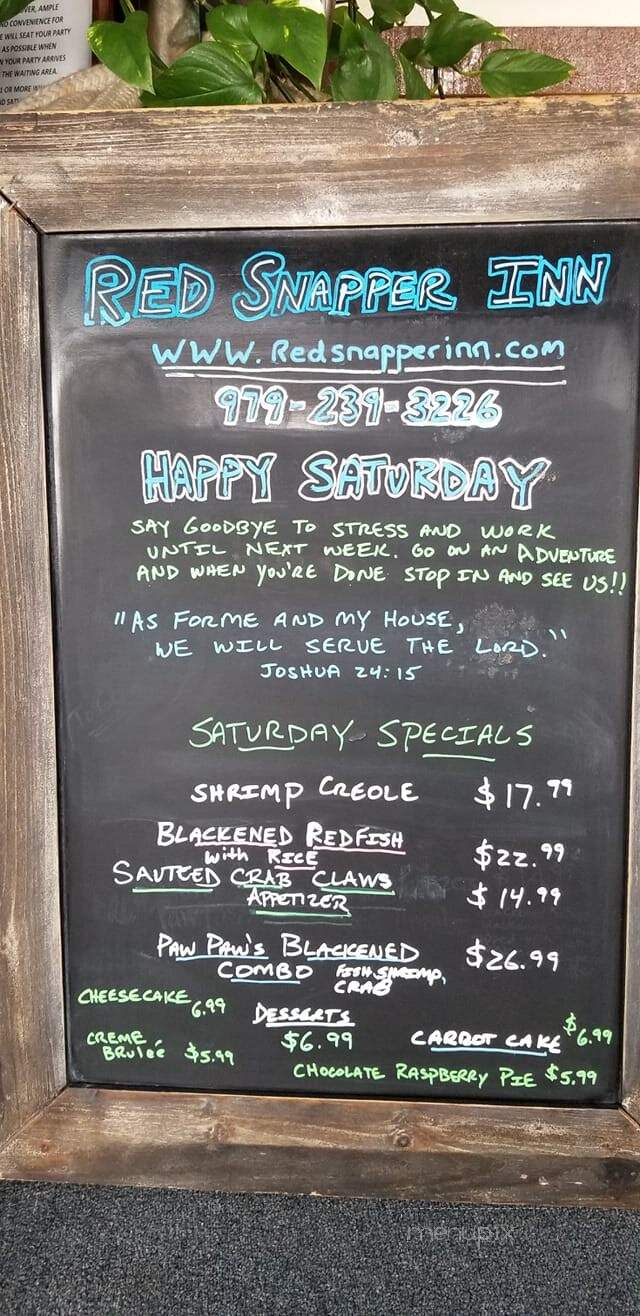 VER, AMPLE
ND CONVENIENCE FOR
E WILL SEAT YOUR PARTY
AS POSSIBLE WHEN
N YOUR PARTY ARRIVES
THE WAITING AREA.
OR MORE
RED SNAPPER INN
WWW.Redsnapperinn.com
979-239-3226
HAPPY SATURDAY
SAY GOODBYE TO STRESS AND WORK
UNTIL NEXT WEEK. GO ON AN ADVENTURE
AND WHEN YOU'RE DONE STOP IN AND SEE US!!
"AS FOR ME AND MY HOUSE,
WE WILL SERVE THE LORD."
JOSHUA 24:15
SATURDAY SPECIALS
SHRIMP CREOLE $17.99
BLACKENED REDFISH
with RICE $22.99
SAUTEED CRAB CLAWS
APPETIZER $14.99
PAW PAW'S BLACKENED
COMBO FISH, SHRIMP, $26.99
CRAB
CHEESECAKE 6.99
DESSERTS
$6.99
CREME
BRULEÉ $5.99
CARROT CAKE $6.99
CHOCOLATE RASPBERRY PIE $5.99
menupix